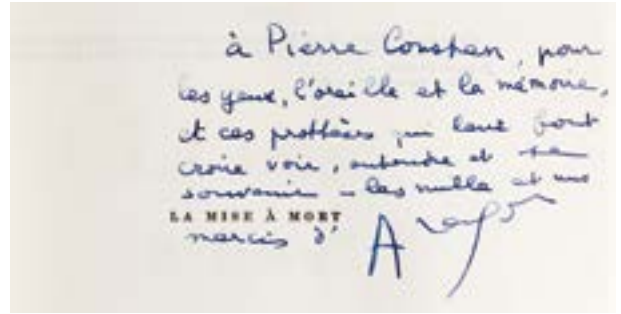 à Pierre Constan, pour
les yeux, l'oreille et la mémoire,
et ces prothèses qui leur font
croire voir, entendre et se
souvenir – les mille et une
LA MISE À MORT
mercis d'
Aragon